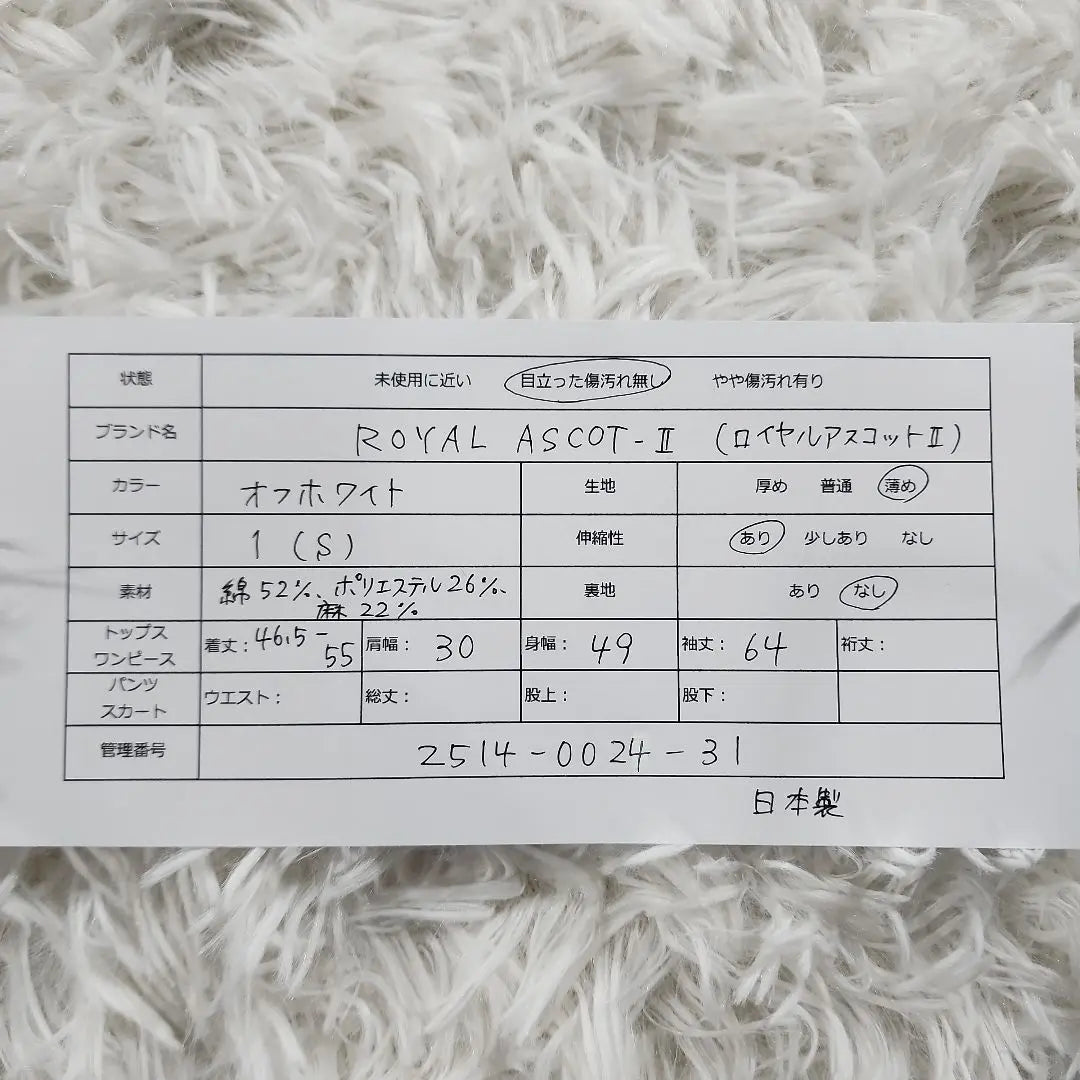 状態 未使用に近い 目立った傷汚れ無し やや傷汚れ有り
ブランド名 ROYAL ASCOT-Ⅱ (ロイヤルアスコットⅡ)
カラー オフホワイト 生地 厚め 普通 薄め
サイズ 1 (S) 伸縮性 あり 少しあり なし
素材 綿52%、ポリエステル26%、 裏地 あり なし
麻 22%
トップス
ワンピース 着丈：46.5-55 肩幅：30 身幅：49 袖丈：64 裄丈：
パンツ
スカート ウエスト： 総丈： 股上： 股下：
管理番号 2514-0024-31
日本製